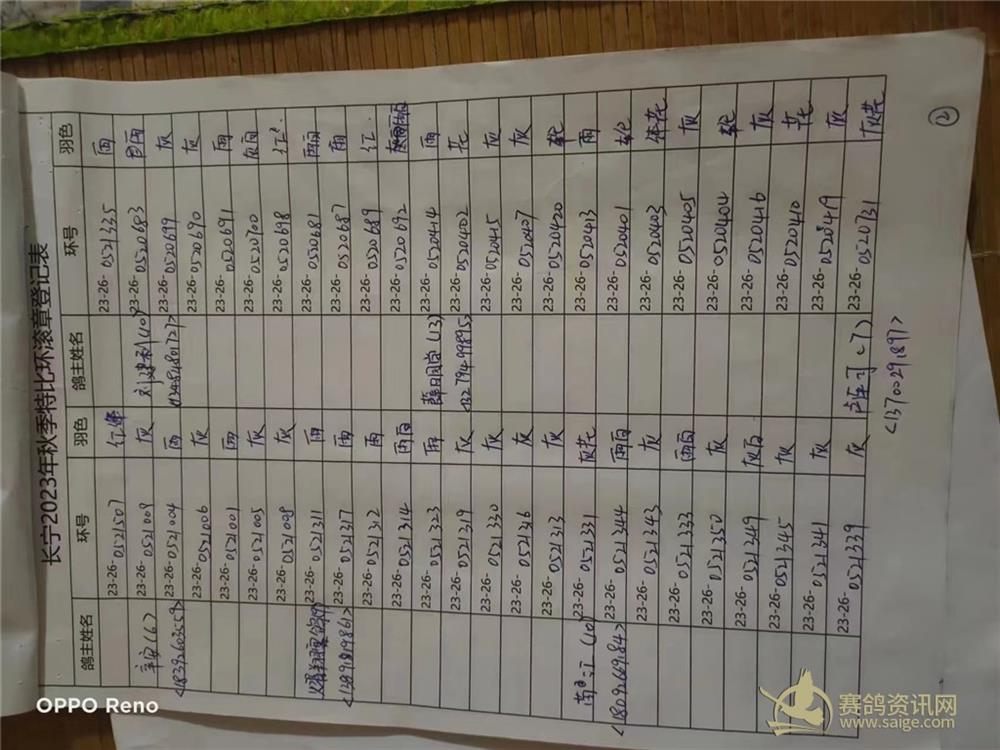 长宁2023年秋季特比环滚章登记表
鸽主姓名 环号 羽色 鸽主姓名 环号 羽色
23-26-0521507 红 23-26-0521335 雨
辛安(6) 23-26-0521009 灰 (10) 23-26-0520683
<18392603559> 23-26-0521004 雨 <13484801727> 23-26-0520699 灰
23-26-0521006 灰 23-26-0520690 灰
23-26-0521001 雨 23-26-0520691 雨
23-26-0521005 灰 23-26-0520700
23-26-0521008 灰 23-26-0520698 红
23-26-0521311 雨 23-26-0520681
23-26-0521317 雨 23-26-0520687 雨
23-26-0521312 雨 23-26-0520689 红
23-26-0521314 雨白 23-26-0520692
23-26-0521323 雨 (13) 23-26-0520414 雨
23-26-0521319 灰 <13279499895> 23-26-0520402 花
23-26-0521330 灰 23-26-0520415 灰
23-26-0521316 灰 23-26-0520407 灰
23-26-0521313 灰 23-26-0520420 轮
(10) 23-26-0521331 灰花 23-26-0520413 雨
23-26-0521344 雨白 23-26-0520401 轮
23-26-0521343 灰 23-26-0520403
23-26-0521333 雨白 23-26-0520405 灰
23-26-0521350 灰 23-26-0520404 轮
23-26-0521349 灰白 23-26-0520416 灰
23-26-0521345 灰 23-26-0520410 花
23-26-0521341 灰 23-26-0520419 灰
23-26-0521339 灰 (7) 23-26-0520731 灰花
<13700291897>
②
OPPO Reno
赛鸽资讯网
www.saige.com